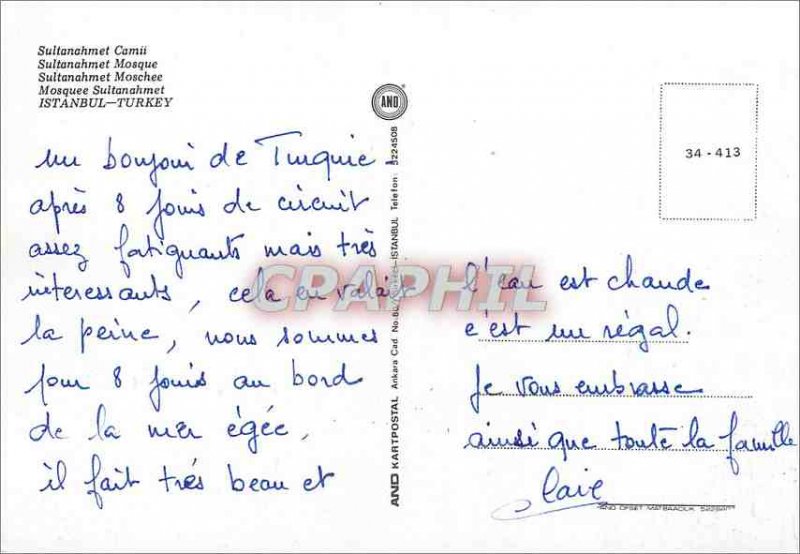 Sultanahmet Camii
Sultanahmet Mosque
Sultanahmet Moschee
Mosquee Sultanahmet
ISTANBUL—TURKEY
un bonjour de Turquie !
après 8 jours de circuit
assez fatiguants mais très
interessants, cela en valait
la peine, nous sommes
pour 8 jours au bord
de la mer égée,
il fait très beau et
AND
AND KARTPOSTAL Ankara Cad No. İSTANBUL Telefon: 5224508
CPAPHIL
34-413
l'eau est chaude
c'est un régal.
Je vous embrasse
ainsi que toute la famille
AND OFSET MATBAACILIK